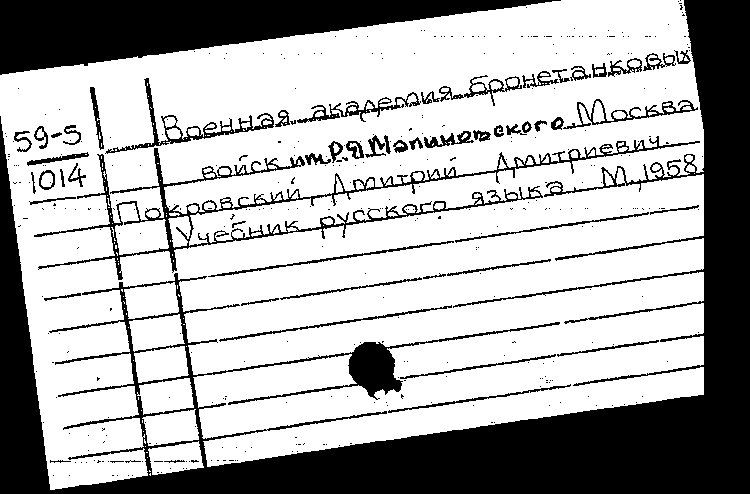 59-5
1014
Военная академия бронетанковых
войск им. Р.Я. Малиновского. Москва
Покровский, Дмитрий Дмитриевич.
Учебник русского языка. М., 1958.